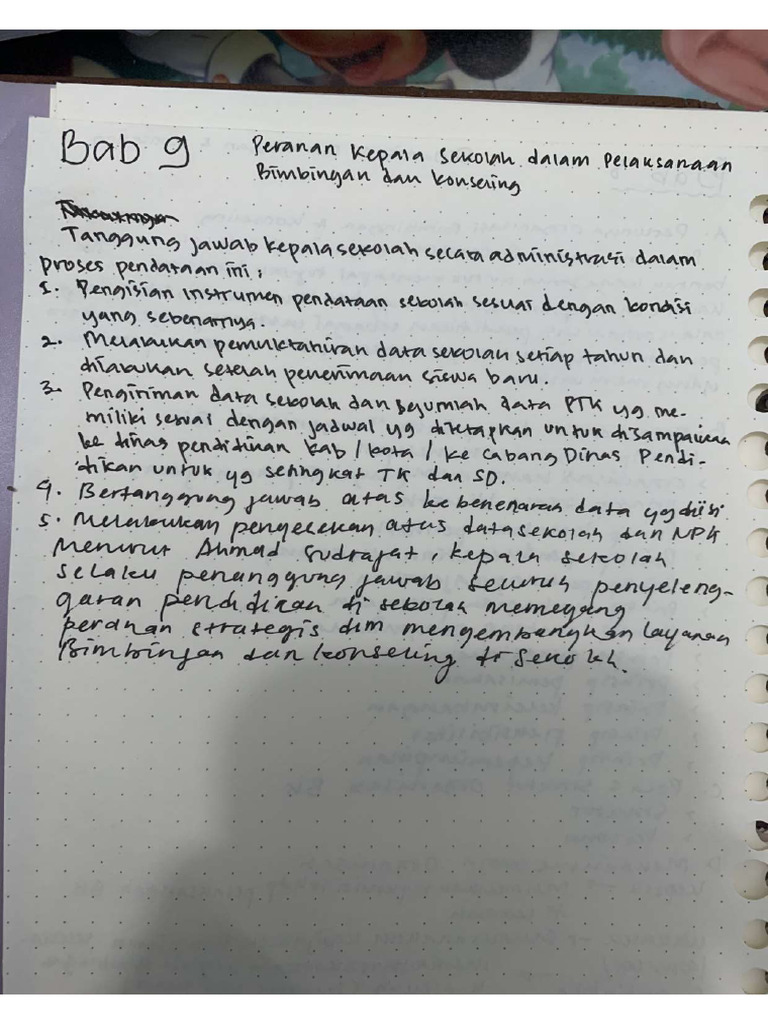 Bab 9 Peranan Kepala Sekolah dalam Pelaksanaan
Bimbingan dan Konseling
Tanggung jawab kepala sekolah secara administrasi dalam
proses pendataan ini :
1. Pengisian instrumen pendataan sekolah sesuai dengan kondisi
yang sebenarnya.
2. Melakukan pemuktahiran data sekolah setiap tahun dan
dilakukan setelah penerimaan siswa baru.
3. Pengiriman data sekolah dan sejumlah data PTK yg me-
miliki sesuai dengan jadwal yg ditetapkan untuk disampaikan
ke dinas pendidikan kab / kota / ke cabang Dinas Pendi-
dikan untuk yg setingkat TK dan SD.
4. Bertanggung jawab atas kebeneran data yg diisi
5. Melakukan pengecekan atas data sekolah dan
Menurut Ahmad Sudrajat, kepala sekolah
selaku penanggung jawab seluruh penyeleng-
garan pendidikan di sekolah memegang
peranan strategis dlm mengembangkan layanan
Bimbingan dan konseling di sekolah.